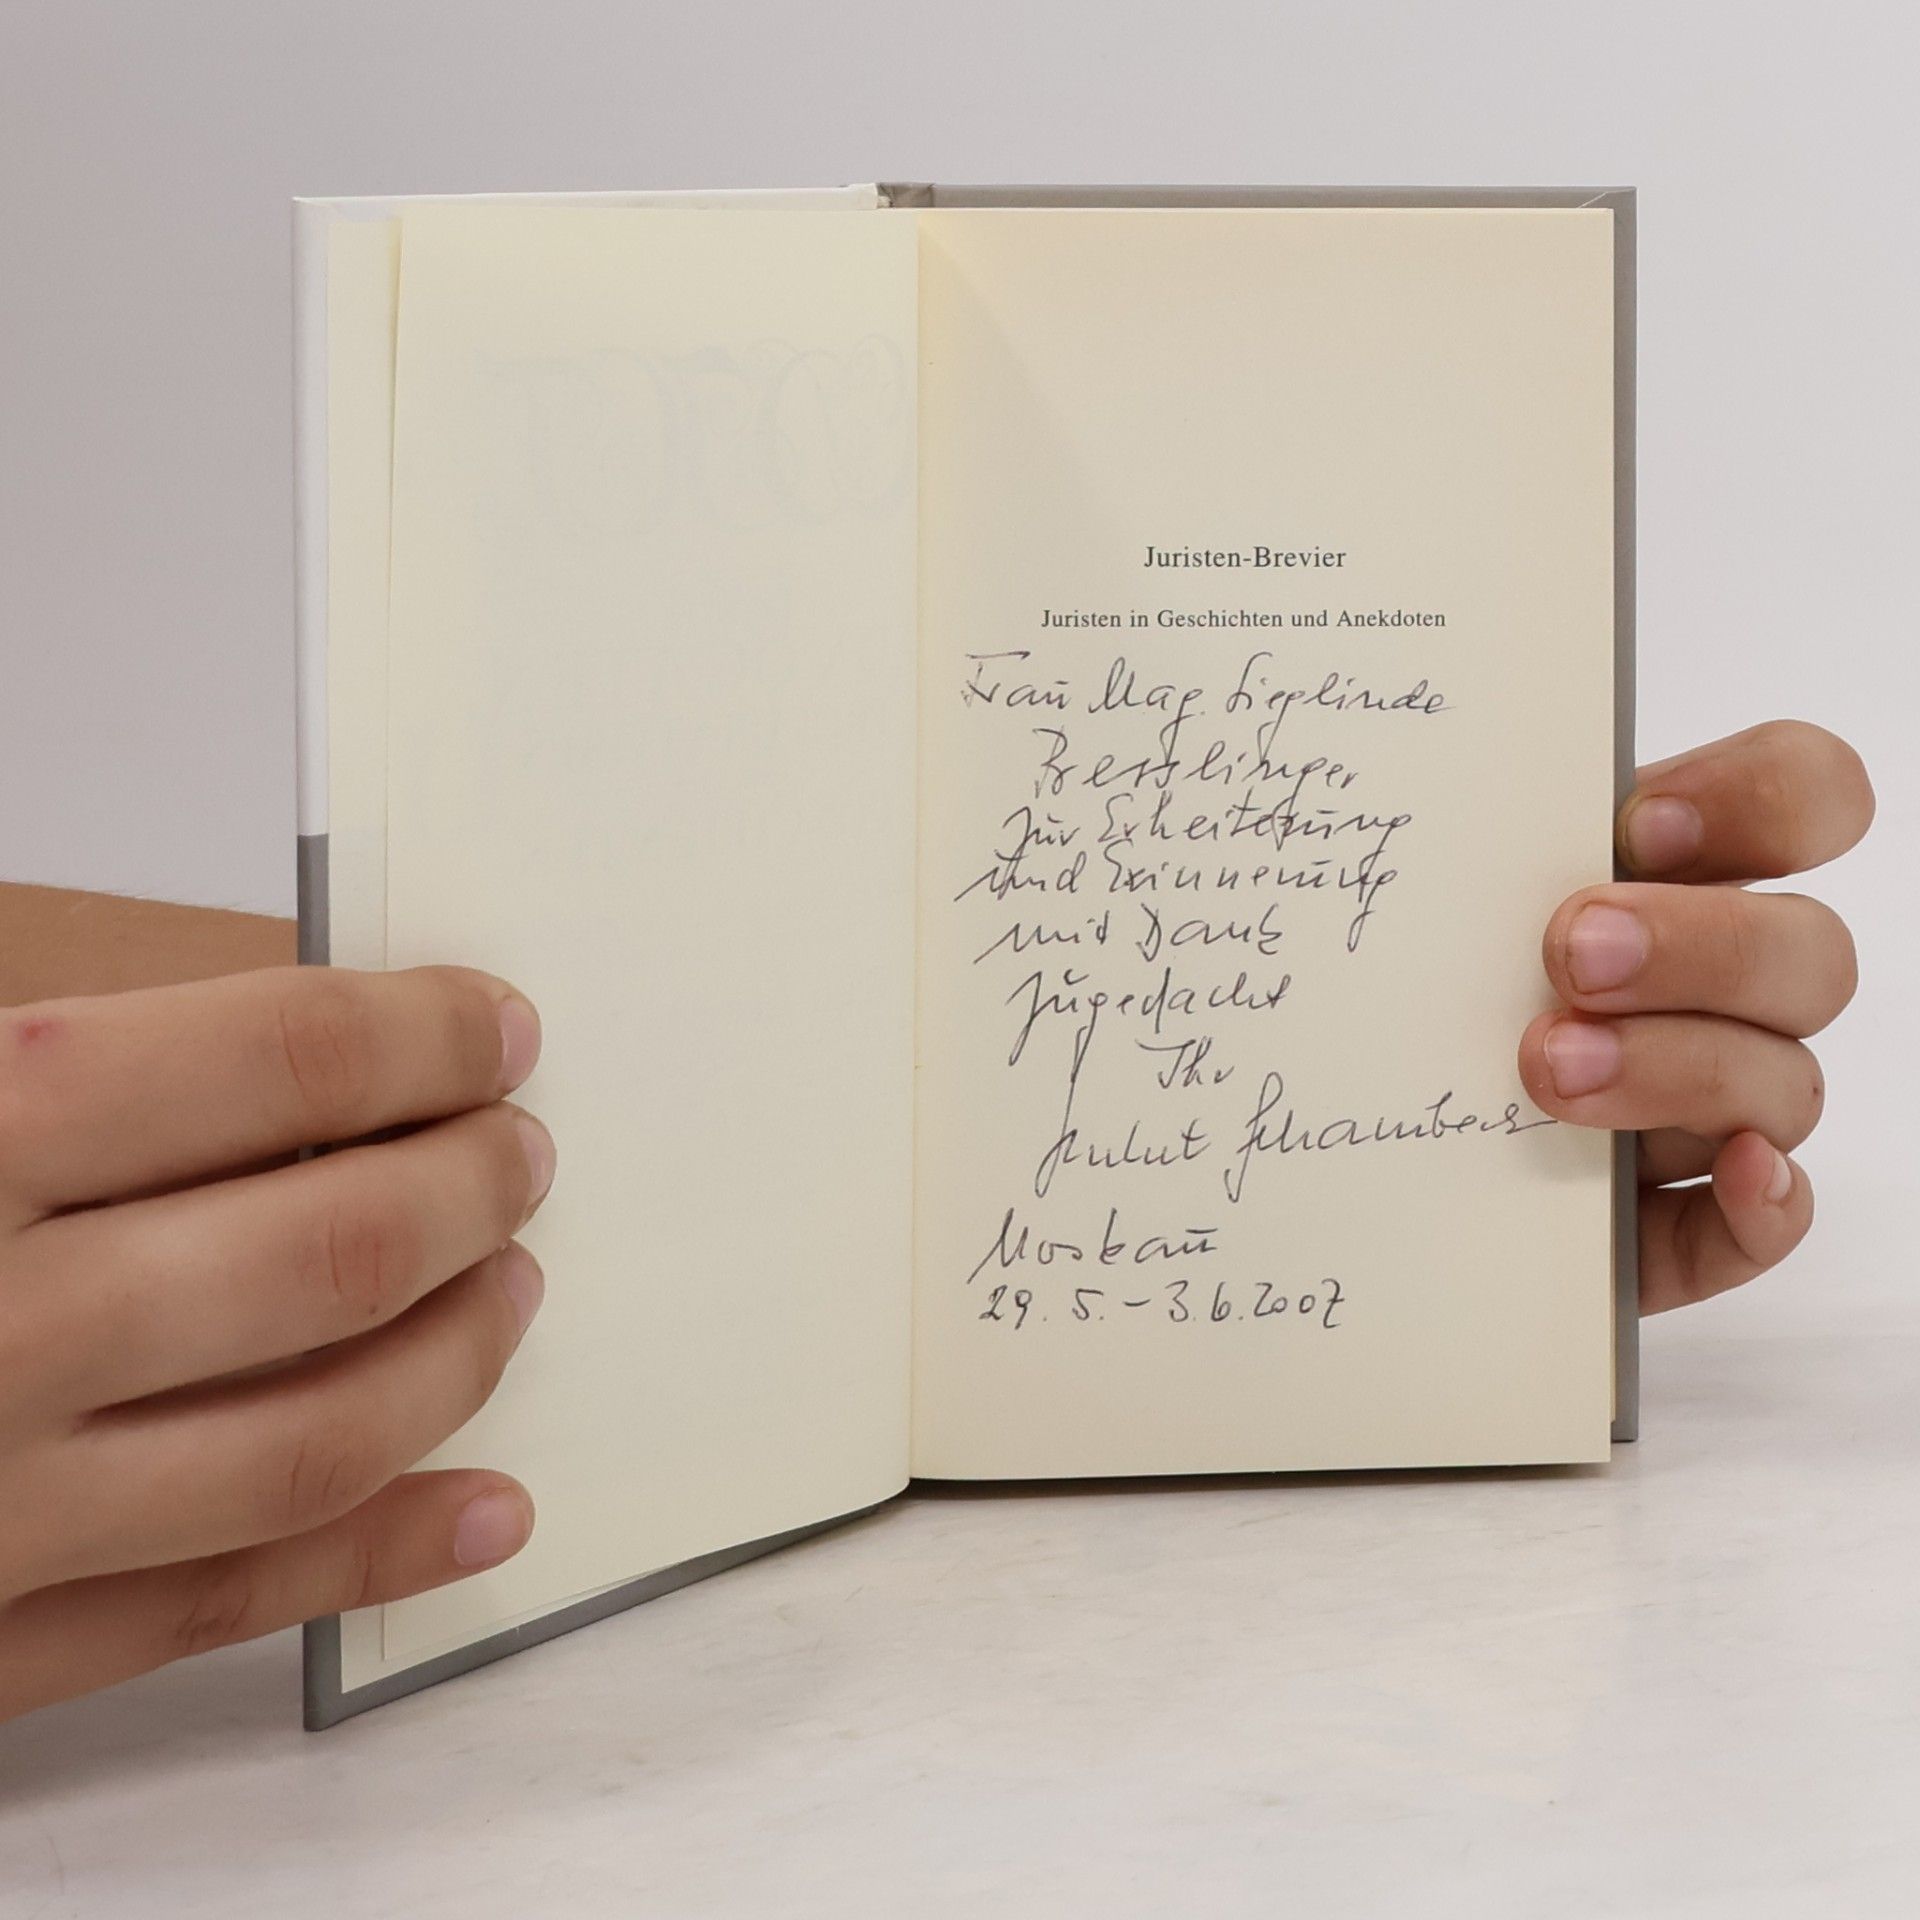 Juristen-Brevier
Juristen in Geschichten und Anekdoten
Frau Mag. Sieglinde
Bresslinger
zur Erheiterung
und Erinnerung
mit Dank
zugedacht
Ihr
Schambeck
Moskau
29. 5. – 3. 6. 2007